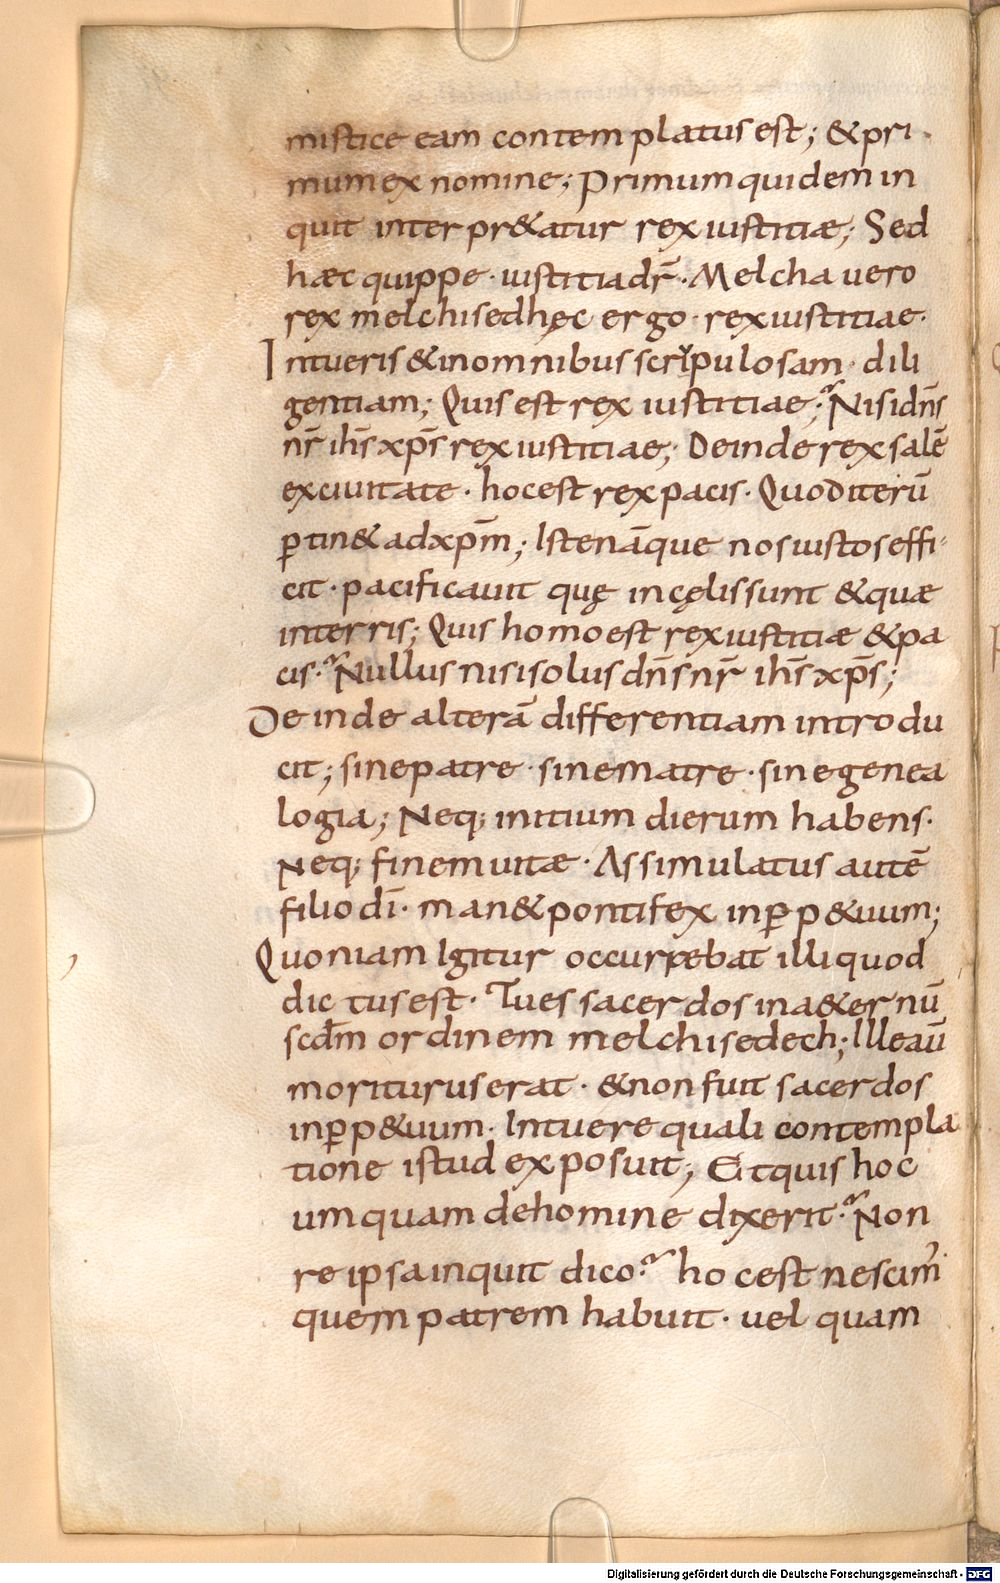 mistice eam contemplatus est; & pri
mum ex nomine; Primum quidem in
quit interpr&atur rex iustitiæ; Sed
hæc quippe · iustitia dr̄ · Melcha uero
rex melchisedhęc ergo · rex iustitiae ·
Intueris & in omnibus scrypulosam · dili
gentiam; Quis est rex iustitiae? Nisi dn̄s
nr̄ ih̄s xp̄s rex iustitiae; Deinde rex salē
ex ciuitate · hoc est rex pacis · Quod iterū
p̱tin& ad xp̄m; Iste nāque nos iustos effi
cit · pacificauit quę in cęlis sunt & quæ
in terris; Quis homo est rex iustitiæ & pa
cis? Nullus nisi solus dn̄s nr̄ ih̄s xp̄s;
Deinde alterā differentiam introdu
cit; sine patre · sine matre · sine genea
logia; Neq; initium dierum habens ·
Neq; finem uitæ · Assimulatus autē
filio dī · man& pontifex in p̱p&uum;
Quoniam Igitur occurrebat illi quod
dictus est · Tu es sacerdos in a&ernū
scd̄m ordinem melchisedech; Ille aū
moriturus erat · & non fuit sacerdos
in p̱p&uum · Intuere quali contempla
tione istud exposuit; Et quis hoc
umquam de homine dixerit? Non
re ipsa inquit dico? hoc est nescim᾽
quem patrem habuit · uel quam
Digitalisierung gefördert durch die Deutsche Forschungsgemeinschaft - DFG